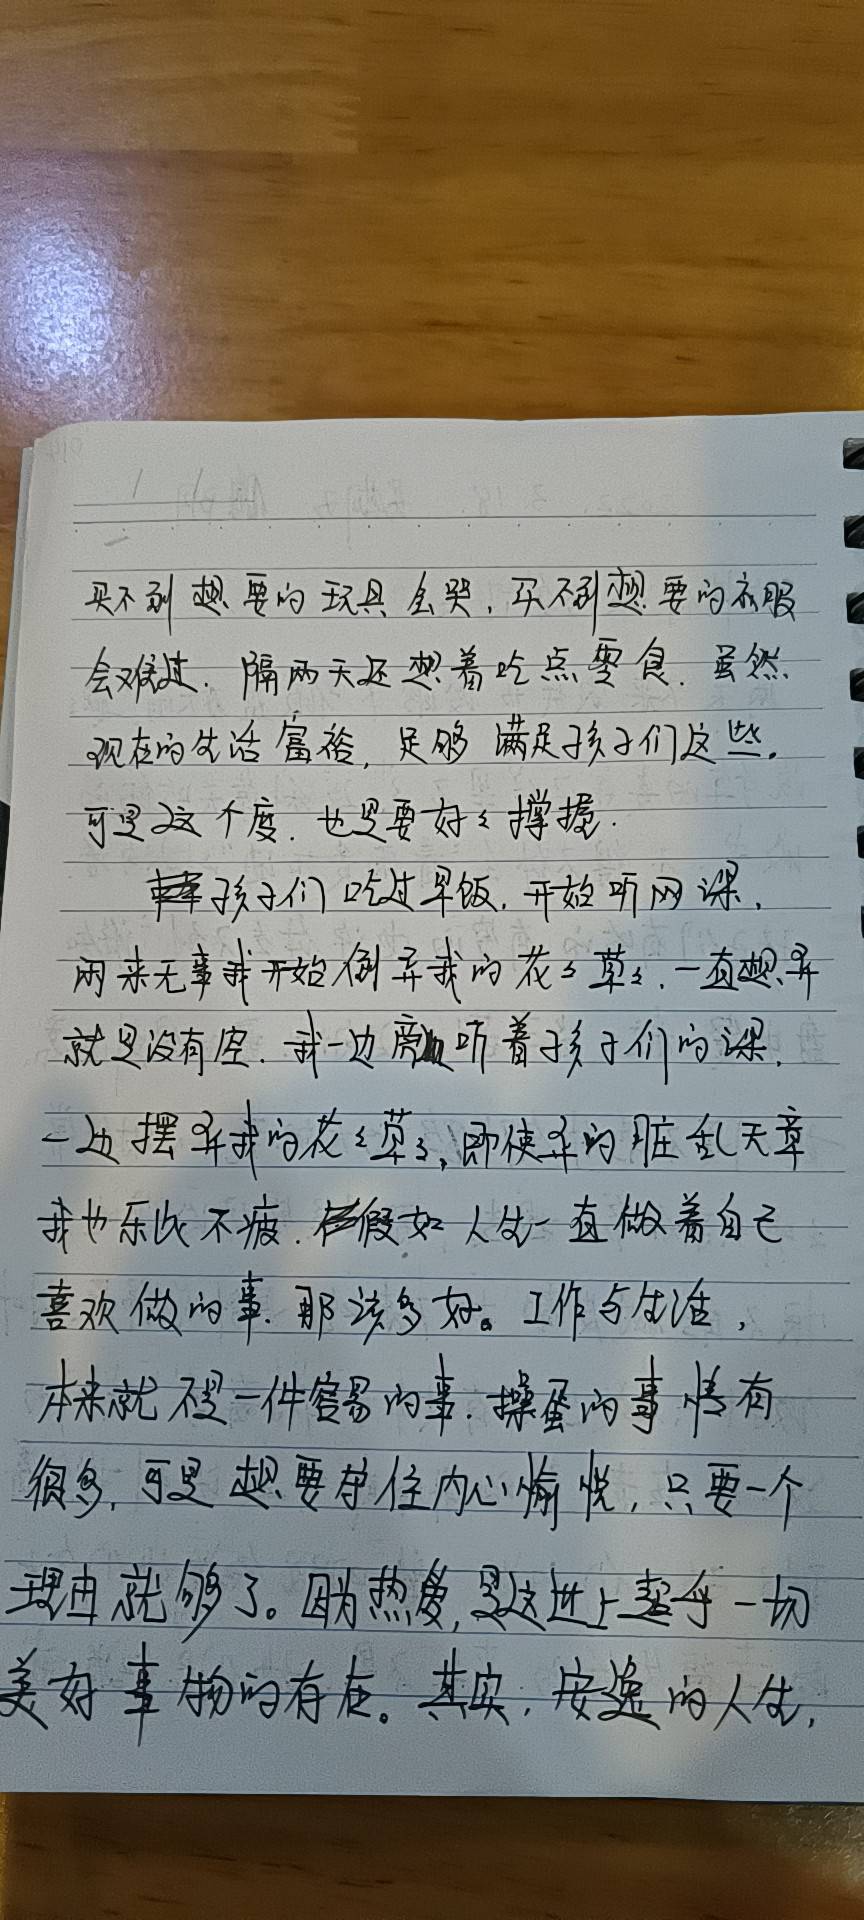 买不到想要的玩具会哭，买不到想要的衣服
会难过．隔两天还想着吃点零食．虽然
现在的生活富裕，足够满足孩子们这些。
可是这个度．也是要好々撑握．
孩子们吃过早饭，开始听网课，
闲来无事我开始倒弄我的花々草々．一直想弄
就是没有空．我一边旁听着孩子们的课．
一边摆弄我的花々草々，即使弄的脏乱天章
我也乐此不疲．假如人生一直做着自己
喜欢做的事．那该多好。工作与生活，
本来就不是一件容易的事．操蛋的事情有
很多，可是想要守住内心愉悦，只要一个
理由就够了。因为热爱，是这世上超乎一切
美好事物的存在。其实，安逸的人生，